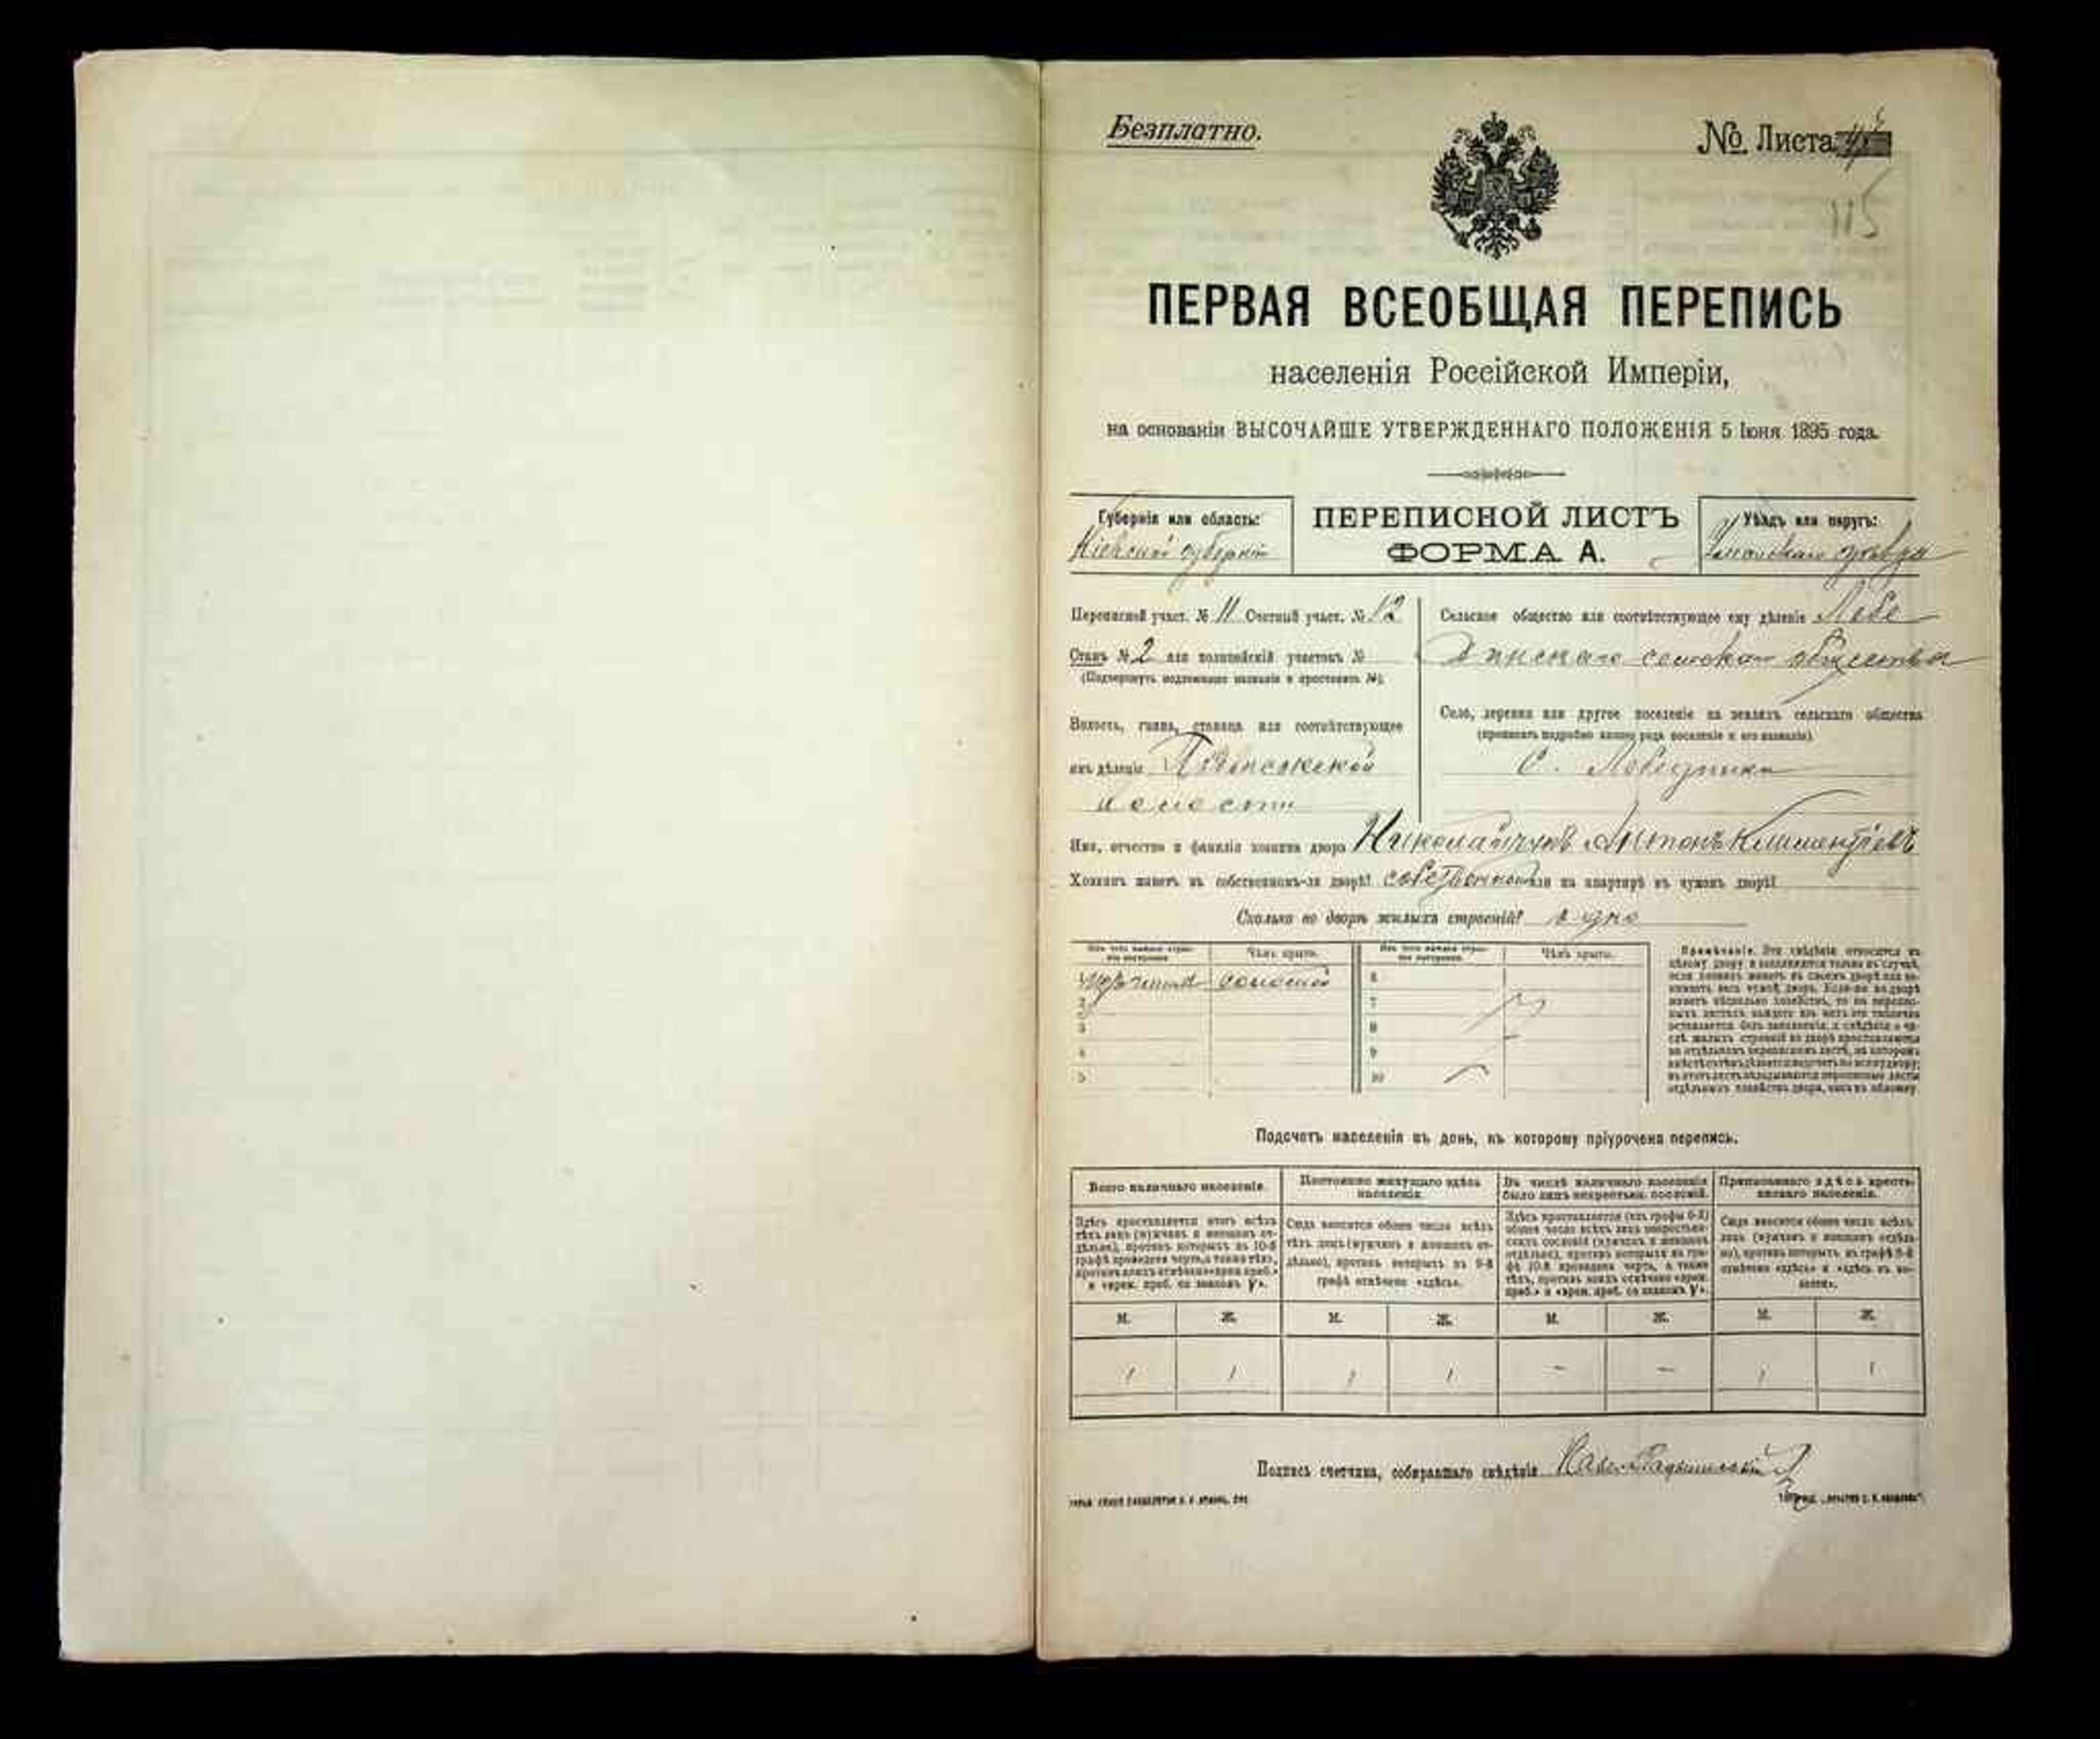 Безплатно.
№ Листа
115
ПЕРВАЯ ВСЕОБЩАЯ ПЕРЕПИСЬ
населенія Россійской Имперіи,
на основаніи ВЫСОЧАЙШЕ УТВЕРЖДЕННАГО ПОЛОЖЕНІЯ 5 Іюня 1895 года.
Губернія или область:
Кіевской губерніи
ПЕРЕПИСНОЙ ЛИСТЪ
ФОРМА А.
Уѣздъ или округъ:
Уманскаго уѣзда
Переписной участ. № 11 Счетный участ. № 12
Станъ № 2 или полицейскій участокъ №
(Подчеркнуть надлежащее названіе и проставить №).
Волость, гмина, станица или соотвѣтствующее
имъ дѣленіе
волости
Сельское общество или соотвѣтствующее ему дѣленіе Лебе
динскаго сельскаго общества
Село, деревня или другое поселеніе на земляхъ сельскаго общества
(прописать подробно какого рода поселеніе и его названіе).
С.
Имя, отчество и фамилія хозяина двора Николайчукъ Антонъ Климентіевъ
Хозяинъ живетъ въ собственномъ-ли дворѣ? или на квартирѣ въ чужомъ дворѣ?
Сколько во дворѣ жилыхъ строеній? одно
Изъ чего каждое строе-
ніе построено.
Чѣмъ крыто.
Изъ чего каждое строе-
ніе построено.
Чѣмъ крыто.
1 соломой
2
3
4
5
6
7
8
9
10
Примѣчаніе. Эти свѣдѣнія относятся къ
цѣлому двору и заполняются только въ случаѣ,
если хозяинъ живетъ въ своемъ дворѣ или за-
нимаетъ весь чужой дворъ. Если-же во дворѣ
живетъ нѣсколько хозяйствъ, то на перепис-
ныхъ листахъ каждаго изъ нихъ эта табличка
оставляется безъ заполненія, а свѣдѣнія о чи-
слѣ жилыхъ строеній во дворѣ проставляются
на отдѣльномъ переписномъ листѣ, на которомъ
отдѣльныхъ хозяйствъ двора, какъ въ обложку.
Подсчетъ населенія въ день, къ которому пріурочена перепись.
Всего наличнаго населенія.
Постоянно живущаго здѣсь
населенія.
Въ числѣ наличнаго населенія
было лицъ некрестьян. сословій.
Приписаннаго здѣсь кресть-
янскаго населенія.
Здѣсь проставляется итогъ всѣхъ
тѣхъ лицъ (мужчинъ и женщинъ от-
дѣльно), противъ которыхъ въ 10-й
графѣ проведена черта, а также тѣхъ,
противъ коихъ отмѣчено «врем. преб.»
и «врем. преб. со знакомъ V».
Сюда вносится общее число всѣхъ
тѣхъ лицъ (мужчинъ и женщинъ от-
дѣльно), противъ которыхъ въ 9-й
графѣ отмѣчено «здѣсь».
Здѣсь проставляется (изъ графы 6-й)
общее число всѣхъ лицъ некрестьян-
скихъ сословій (мужчинъ и женщинъ
отдѣльно), противъ которыхъ въ гра-
фѣ 10-й проведена черта, а также
тѣхъ, противъ коихъ отмѣчено «врем.
преб.» и «врем. преб. со знакомъ V».
Сюда вносится общее число всѣхъ
лицъ (мужчинъ и женщинъ отдѣль-
но), противъ которыхъ въ графѣ 8-й
отмѣчено «здѣсь» и «здѣсь въ во-
лости».
М. Ж. М. Ж. М. Ж. М. Ж.
1 1 1 1 — — 1 1
Подпись счетчика, собиравшаго свѣдѣнія